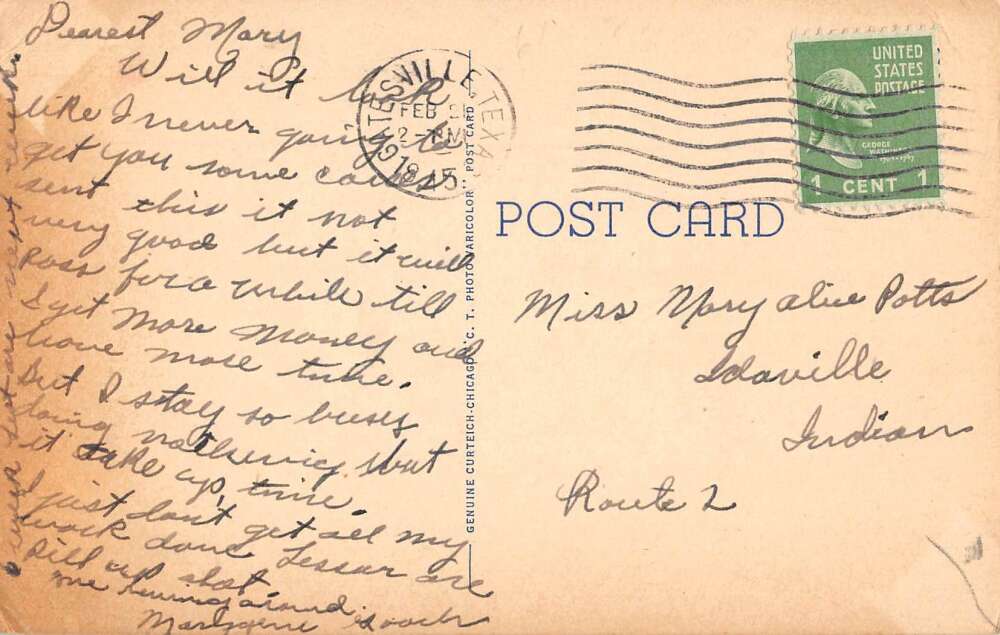 Dearest Mary
Will it look
like I never going to
get you some cards
sent this it not
very good but it will
Pass for a while till
I get more money and
have more time.
But I stay so buesy
doing nothing but
it take up time.
I just don't get all my
work done
are
running around
GATESVILLE, TEXAS
FEB
2 - PM
UNITED
STATES
POSTAGE
GEORGE
WASHINGTON
1 CENT 1
POST CARD
GENUINE CURTEICH-CHICAGO "C. T. PHOTO-VARICOLOR" POST CARD
Miss Mary Alice Potts
Idaville
Indian
Route 2